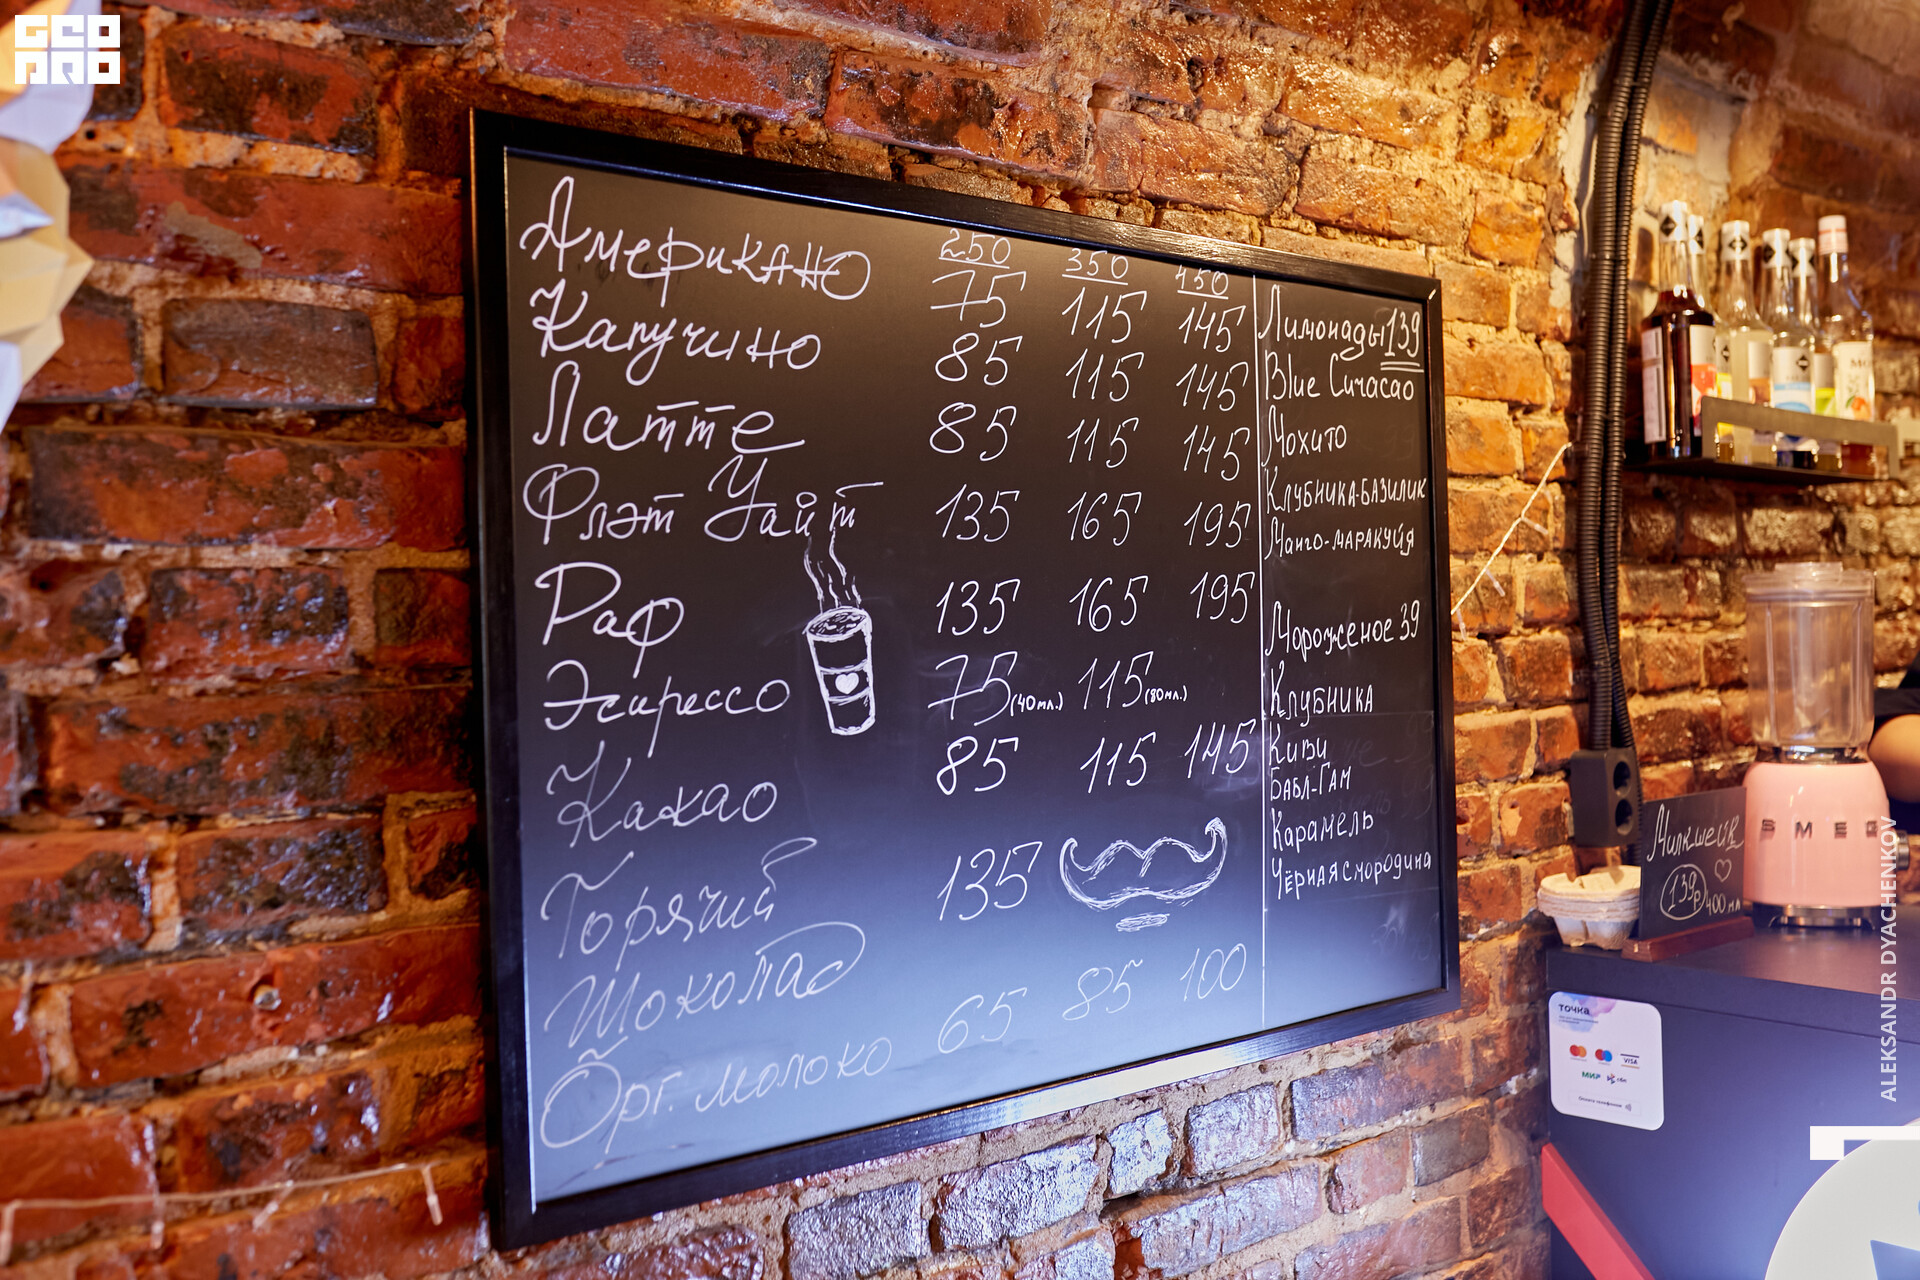 GEO
PRO
250 350 450
Американо 75 115 145
Капучино 85 115 145
Латте 85 115 145
Флэт Уайт 135 165 195
Раф 135 165 195
Эспрессо 75 (40мл.) 115 (80мл.)
Какао 85 115 145
Горячий
Шоколад 135
Орг. молоко 65 85 100
Лимонады 139
Blue Curacao
Мохито
Клубника-базилик
Манго-маракуйя
Мороженое 39
Клубника
Киви
Бабл-Гам
Карамель
Чёрная смородина
Милкшейк
139р
400 мл
SMEG
точка
VISA
МИР
сбп
ALEKSANDR DYACHENKOV